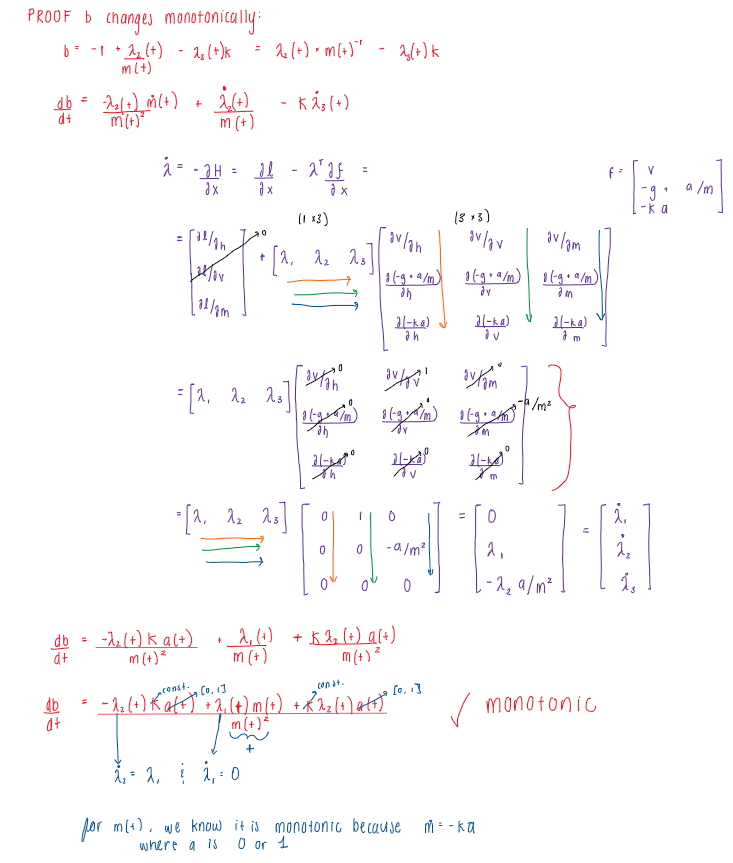 PROOF b changes monotonically:
b = -1 + λ₂(t)/m(t) - λ₃(t)k = λ₂(t) · m(t)⁻¹ - λ₃(t)k
db/dt = -λ₂(t) ṁ(t)/m(t)² + λ̇₂(t)/m(t) - k λ̇₃(t)
λ̇ = -∂H/∂x = ∂l/∂x - λᵀ ∂f/∂x =
f = [v; -g + a/m; -ka]
(1×3) (3×3)
= [∂l/∂h; ∂l/∂v; ∂l/∂m] 0 + [λ₁ λ₂ λ₃] [∂v/∂h ∂v/∂v ∂v/∂m; ∂(-g+a/m)/∂h ∂(-g+a/m)/∂v ∂(-g+a/m)/∂m; ∂(-ka)/∂h ∂(-ka)/∂v ∂(-ka)/∂m]
= [λ₁ λ₂ λ₃] [∂v/∂h 0 ∂v/∂v 1 ∂v/∂m 0; ∂(-g+a/m)/∂h 0 ∂(-g+a/m)/∂v 0 ∂(-g+a/m)/∂m -a/m²; ∂(-ka)/∂h 0 ∂(-ka)/∂v 0 ∂(-ka)/∂m 0]
= [λ₁ λ₂ λ₃] [0 1 0; 0 0 -a/m²; 0 0 0] = [0; λ₁; -λ₂ a/m²] = [λ̇₁; λ̇₂; λ̇₃]
db/dt = -λ₂(t) k a(t)/m(t)² + λ₁(t)/m(t) + k λ₂(t) a(t)/m(t)²
const. [0,1] const. [0,1]
db/dt = (-λ₂(t) k a(t) + λ₁(t) m(t) + k λ₂(t) a(t))/m(t)² ✓ monotonic
+
λ̇₂ = λ₁ & λ̇₁ = 0
for m(t), we know it is monotonic because ṁ = -ka
where a is 0 or 1